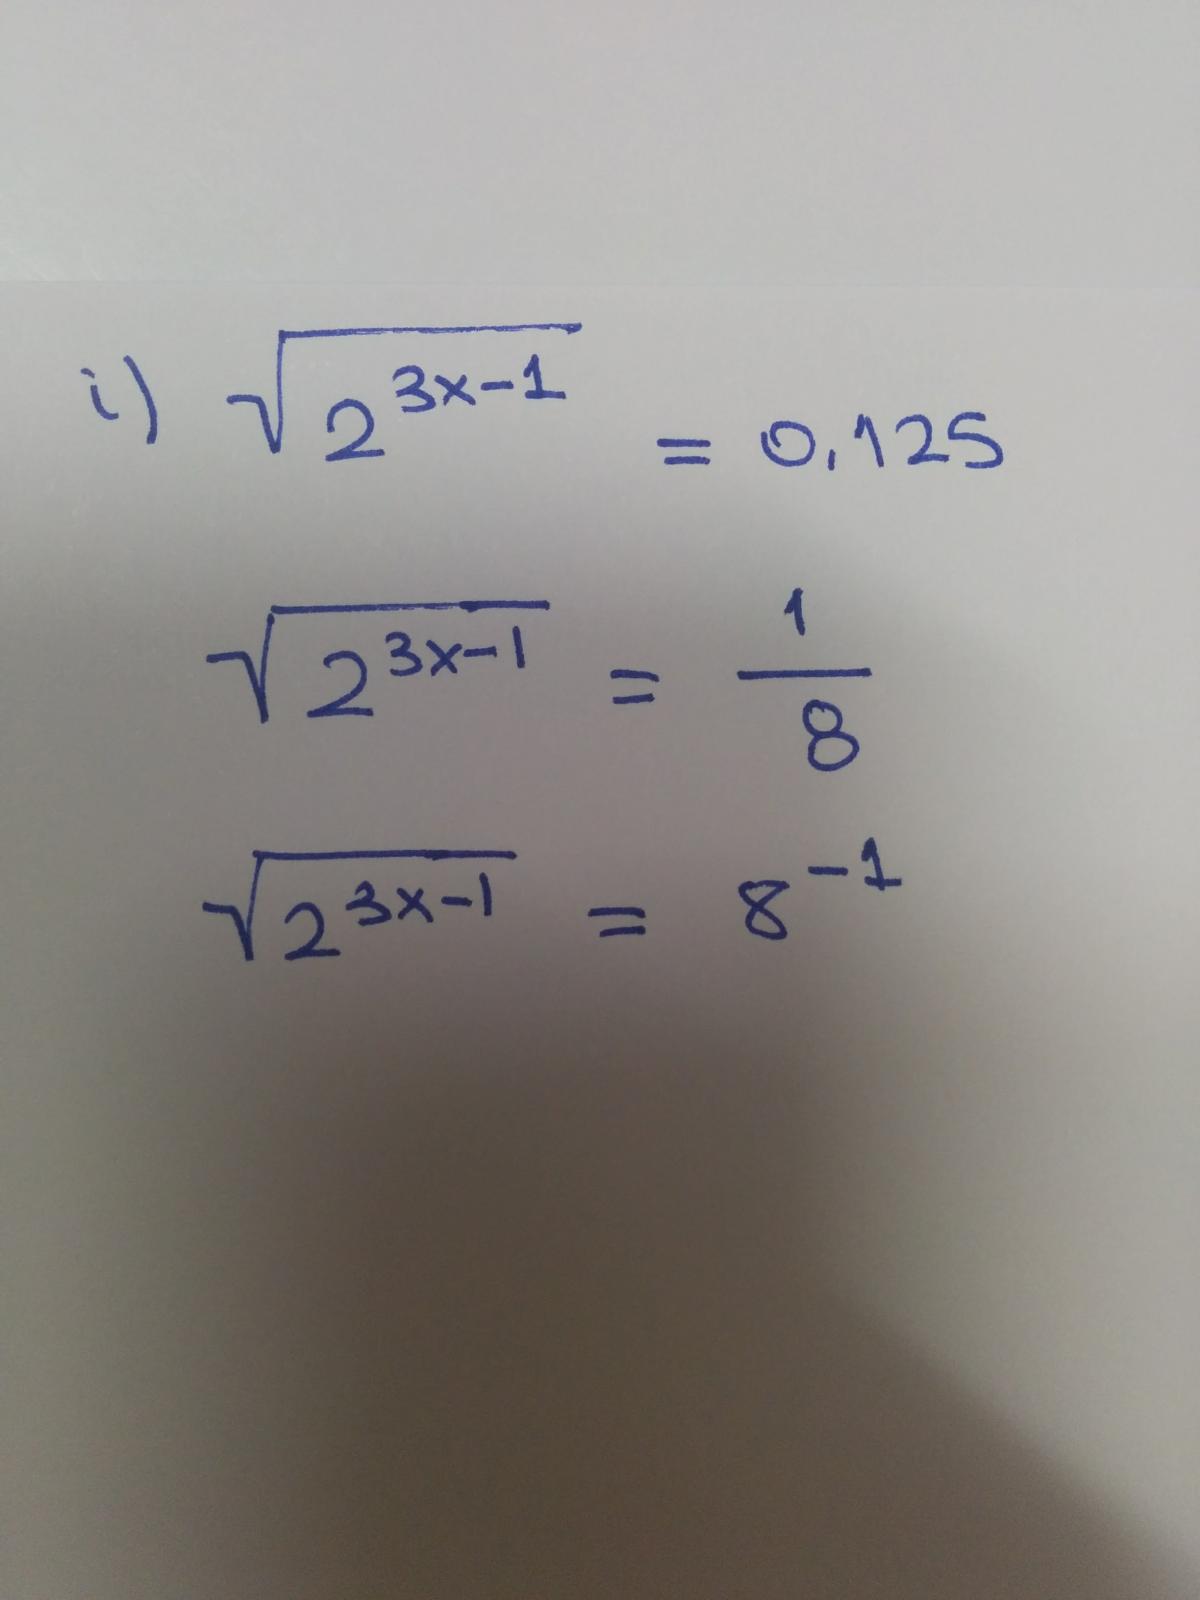 i) √2^{3x-1} = 0,125
√2^{3x-1} = 1/8
√2^{3x-1} = 8^{-1}